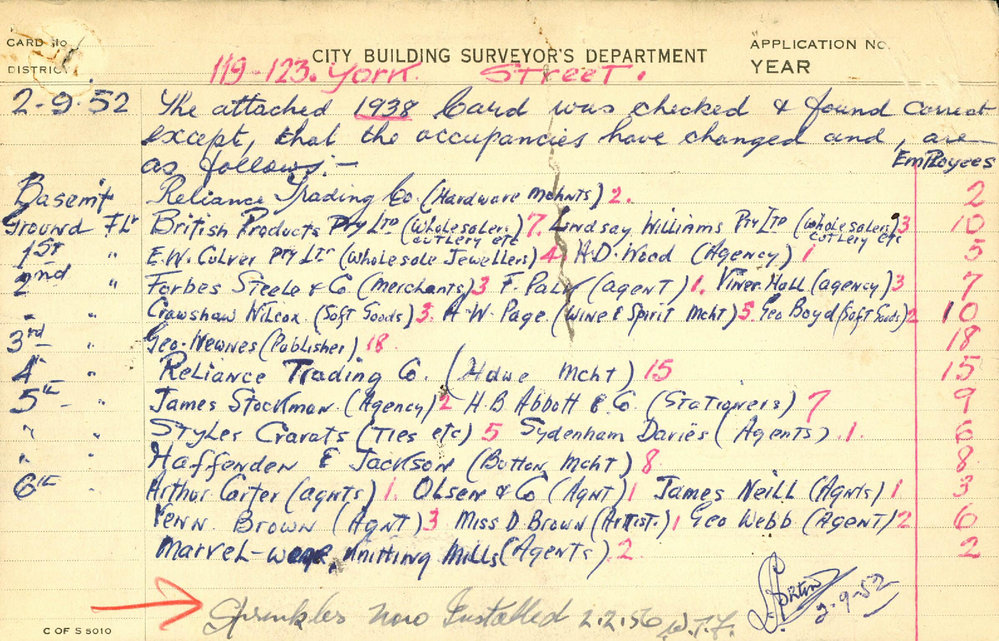 CARD No. CITY BUILDING SURVEYOR'S DEPARTMENT APPLICATION No.
DISTRICT YEAR
119-123. York Street.
2-9-52 The attached 1938 Card was checked & found correct
except, that the occupancies have changed and, are
as follows:— Employees
Basemt Reliance Trading Co. (Hardware Mchnts) 2. 2
Ground Flr British Products Pty Ltd (Wholesalers cutlery etc) 7. Lindsay Williams Pty Ltd (Wholesalers cutlery etc) 3 10
1st " E.W. Culver Pty Ltd (Wholesale Jewellers) 4 A.D. Wood (Agency) 1 5
2nd " Forbes Steele & Co (Merchants) 3 F. Palk (agent) 1. Viner Hall (agency) 3 7
" " Crawshaw Wilcox (Soft Goods) 3. A.W. Page (Wine & Spirit Mcht) 5 Geo Boyd (Soft Goods) 2 10
3rd " Geo. Newnes (Publisher) 18 18
4th " Reliance Trading Co. (Hdwe Mcht) 15 15
5th " James Stockman. (Agency) 2 H.B Abbott & Co. (Stationers) 7 9
" " Styles Cravats (Ties etc) 5 Sydenham Davies (Agents). 1. 6
" " Haffenden & Jackson (Button Mcht) 8. 8
6th " Arthur Carter (agnts) 1. Olsen & Co (Agnt) 1 James Neill (Agnts) 1 3
Brown (Agnt) 3 Miss D. Brown (Artist.) 1 Geo Webb (Agent) 2 6
Marvel-wear Knitting Mills (Agents) 2 2
2-9-52
Sprinkler now Installed 2.2.56 W.T.F.
C OF S 5010